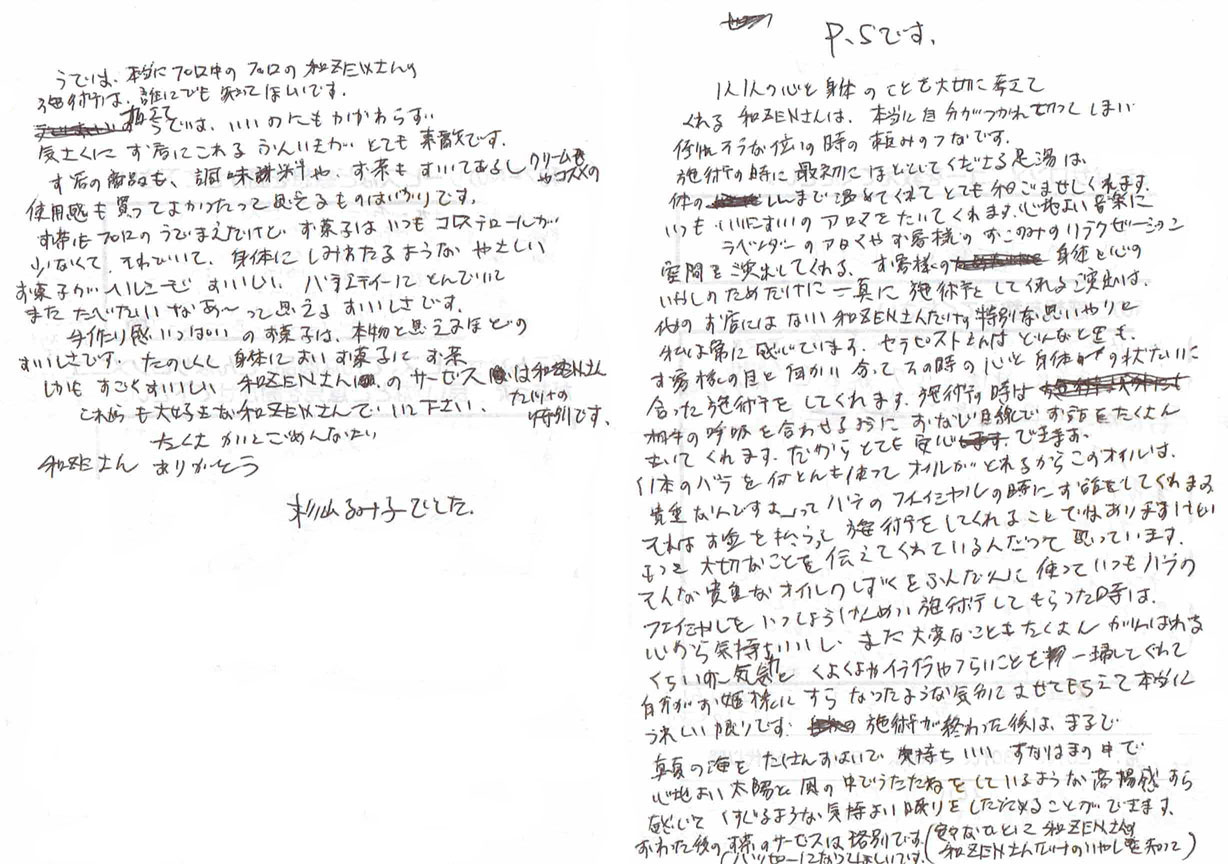 P.Sです。
1人1人の心と身体のことを大切に考えて
くれる 和ZENさんは、本当に自分がつかれ切ってしまい
倒れそうな位の時の頼みのつなです。
施術の時に最初にほどこしてくださる足湯は、
体の しんまで温めてくれてとても分ごませしくれます。
いつも いいにすいの アロマをたいてくれます。心地よい音楽に
ラベンダーのアロマやお客様のおこのみのリラクゼーション
空間を演出してくれる、お客様の 身体と心の
いやしのためだけに一真に施術をしてくれる演出は、
他のお店にはない和ZENさんだけの特別な思いやりと
私は常に感じています。セラピストさんは どんなときも、
お客様の目と向かい合って その時の心と身体の状たいに
合った施術をしてくれます。施術の時は
相手の呼吸を合わせるように おなじ目線でお話をたくさん
きいてくれます。だからとても安心できます。
貴重なんですよ」って バラのフェイシャルの時にお話をしてくれます。
それはお金を払って施術をしてくれることではありますけど
もっと大切なことを伝えてくれているんだって思っています。
そんな貴重なオイルのしずくをふんだんに使っていつもバラの
フェイシャルを いっしょうけんめい施術してもらった時は、
心から気持ちいいし、また大変なこともたくさん がんばれる
くらいの気分と くよくよやイライラやつらいことを 一掃してくれて
自分がお姫様に すら なったような気分にさせてもらえて本当に
うれしい限りです。 施術が終わった後は、まるで
真夏の海を たくさんおよいで 気持ちいい すなはまの中で
心地よい太陽と 風の中でうたたねをしているような高揚感すら
感じて くすぐるような気持よい眠りをしたためることができます。
おわった後のお茶のサービスは格別です。
和ZENさんだけのいやしを知って)
うでは、本当にプロ中のプロの和ZENさんの
施術は、誰にでも知ってほしいです。
うでは、いいのにもかかわらず
気さくに お店にこれる ふんいきが とても 素敵です。
お店の商品も、調味料や、お茶も すいてあるし クリームや
コスメの
使用感も買ってよかったって思えるものばかりです。
お茶もプロのうでまえだけど お菓子は いつも コレステロールが
少なくて、それでいて、身体に しみわたるような やさしい
お菓子がヘルシーで おいしい、バラエティーに とんでいて
また たべたい なあ〜って思える おいしさです。
手作り感いっぱいの お菓子は、本物と思えるほどの
おいしさです。 たのしく 身体によい お菓子に お茶
しかも すごくおいしい 和ZENさんの サービスは和ZENさん
だけの
特別です。
これからも大好きな和ZENさんでいて下さい。
たくさん かいてごめんなさい
和ZENさん ありがとう
杉山るみ子でした。